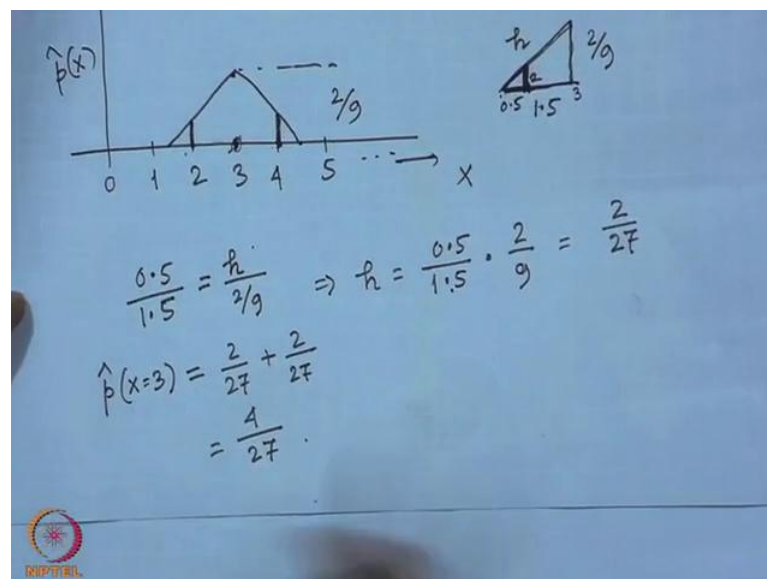 p̂(x)
2/9
0 1 2 3 4 5 ... → x
h
2/9
2
0.5 1.5 3
0.5/1.5 = h/(2/9) ⇒ h = 0.5/1.5 · 2/9 = 2/27
p̂(x=3) = 2/27 + 2/27
= 4/27.
NPTEL